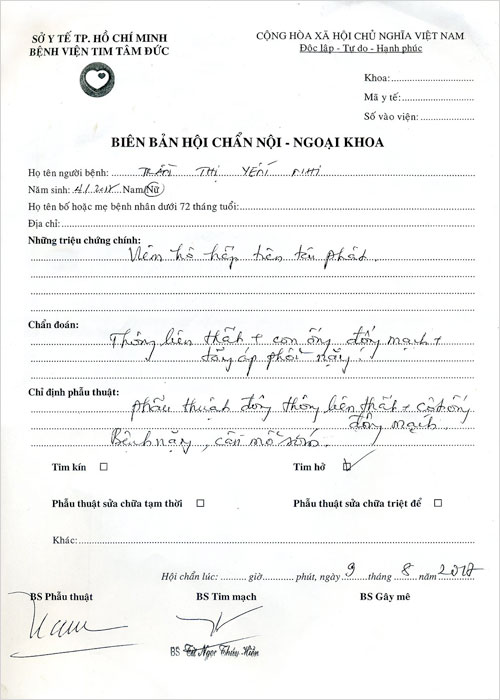 SỞ Y TẾ TP. HỒ CHÍ MINH
BỆNH VIỆN TIM TÂM ĐỨC
CỘNG HÒA XÃ HỘI CHỦ NGHĨA VIỆT NAM
Độc lập - Tự do - Hạnh phúc
Khoa:
Mã y tế:
Số vào viện:
BIÊN BẢN HỘI CHẨN NỘI - NGOẠI KHOA
Họ tên người bệnh: TRẦN THỊ YẾN NHI
Năm sinh: Nam/Nữ
Họ tên bố hoặc mẹ bệnh nhân dưới 72 tháng tuổi:
Địa chỉ:
Những triệu chứng chính:
Viêm hô hấp trên tái phát.
Chẩn đoán:
Thông liên thất + còn ống động mạch +
tăng áp phổi nặng.
Chỉ định phẫu thuật:
Phẫu thuật đóng thông liên thất + cột ống
động mạch.
Bệnh nặng, cần mổ sớm.
Tim kín ☐ Tim hở ☑
Phẫu thuật sửa chữa tạm thời ☐ Phẫu thuật sửa chữa triệt để ☐
Khác:
Hội chẩn lúc: giờ phút, ngày 9 tháng 8 năm 2017
BS Phẫu thuật BS Tim mạch BS Gây mê
BS Ngọc Hiền